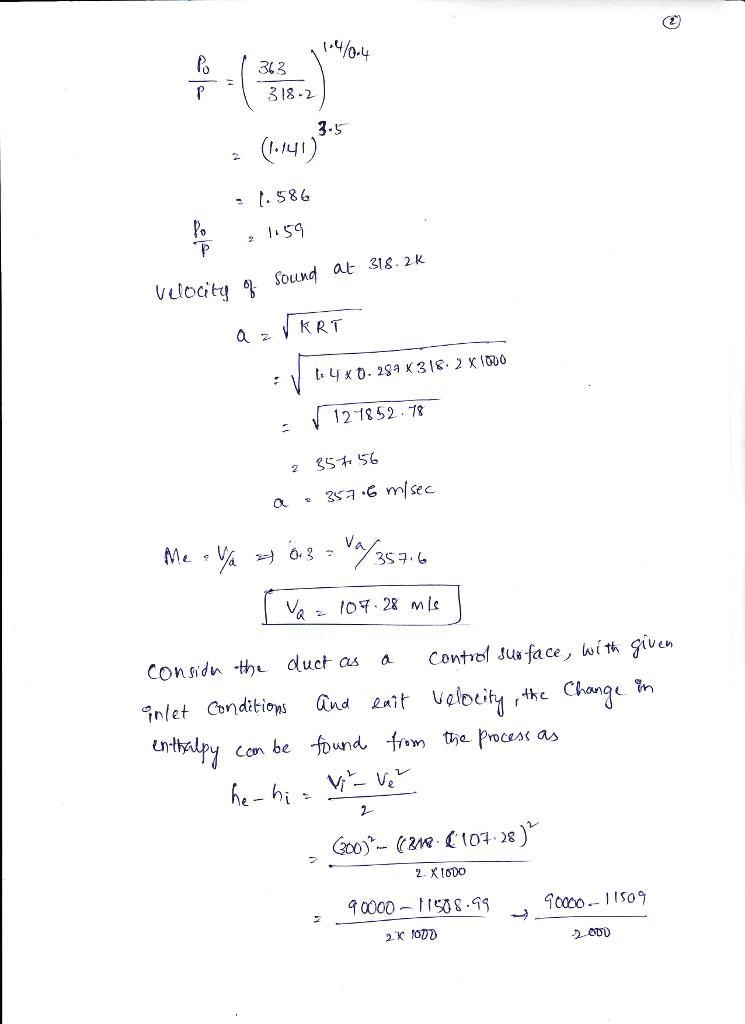 ②
P₀/P = (363/318.2)^1.4/0.4
= (1.141)^3.5
= 1.586
P₀/P = 1.59
Velocity of sound at 318.2K
a = √KRT
= √1.4 x 0.287 x 318.2 x 1000
= √127852.78
= 357.56
a = 357.6 m/sec
Me = V/a ⇒ 0.3 = Va/357.6
Va = 107.28 m/s
Consider the duct as a control surface, with given
inlet conditions and exit velocity, the change in
enthalpy can be found from the process as
he - hi = Vi² - Ve² / 2
= (300)² - (107.28)² / 2 x 1000
= 90000 - 11508.99 / 2 x 1000 → 90000 - 11509 / 2000